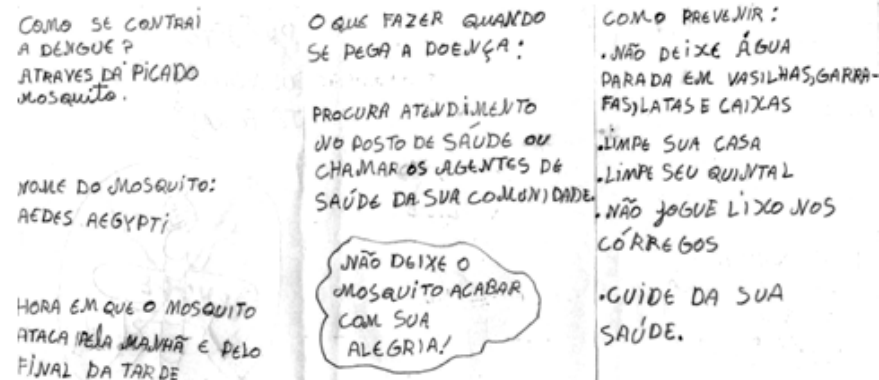 COMO SE CONTRAI
A DENGUE?
ATRAVES DA PICADO
MOSQUITO.
NOME DO MOSQUITO:
AEDES AEGYPTI
HORA EM QUE O MOSQUITO
ATACA PELA MANHÃ E PELO
FINAL DA TARDE
O QUE FAZER QUANDO
SE PEGA A DOENÇA:
PROCURA ATENDIMENTO
NO POSTO DE SAÚDE OU
CHAMAR OS AGENTES DE
SAÚDE DA SUA COMUNIDADE.
NÃO DEIXE O
MOSQUITO ACABAR
COM SUA
ALEGRIA!
COMO PREVENIR:
.NÃO DEIXE ÁGUA
PARADA EM VASILHAS,GARRA-
FAS,LATAS E CAIXAS
.LIMPE SUA CASA
.LIMPE SEU QUINTAL
.NÃO JOGUE LIXO NOS
CÓRREGOS
.CUIDE DA SUA
SAÚDE.